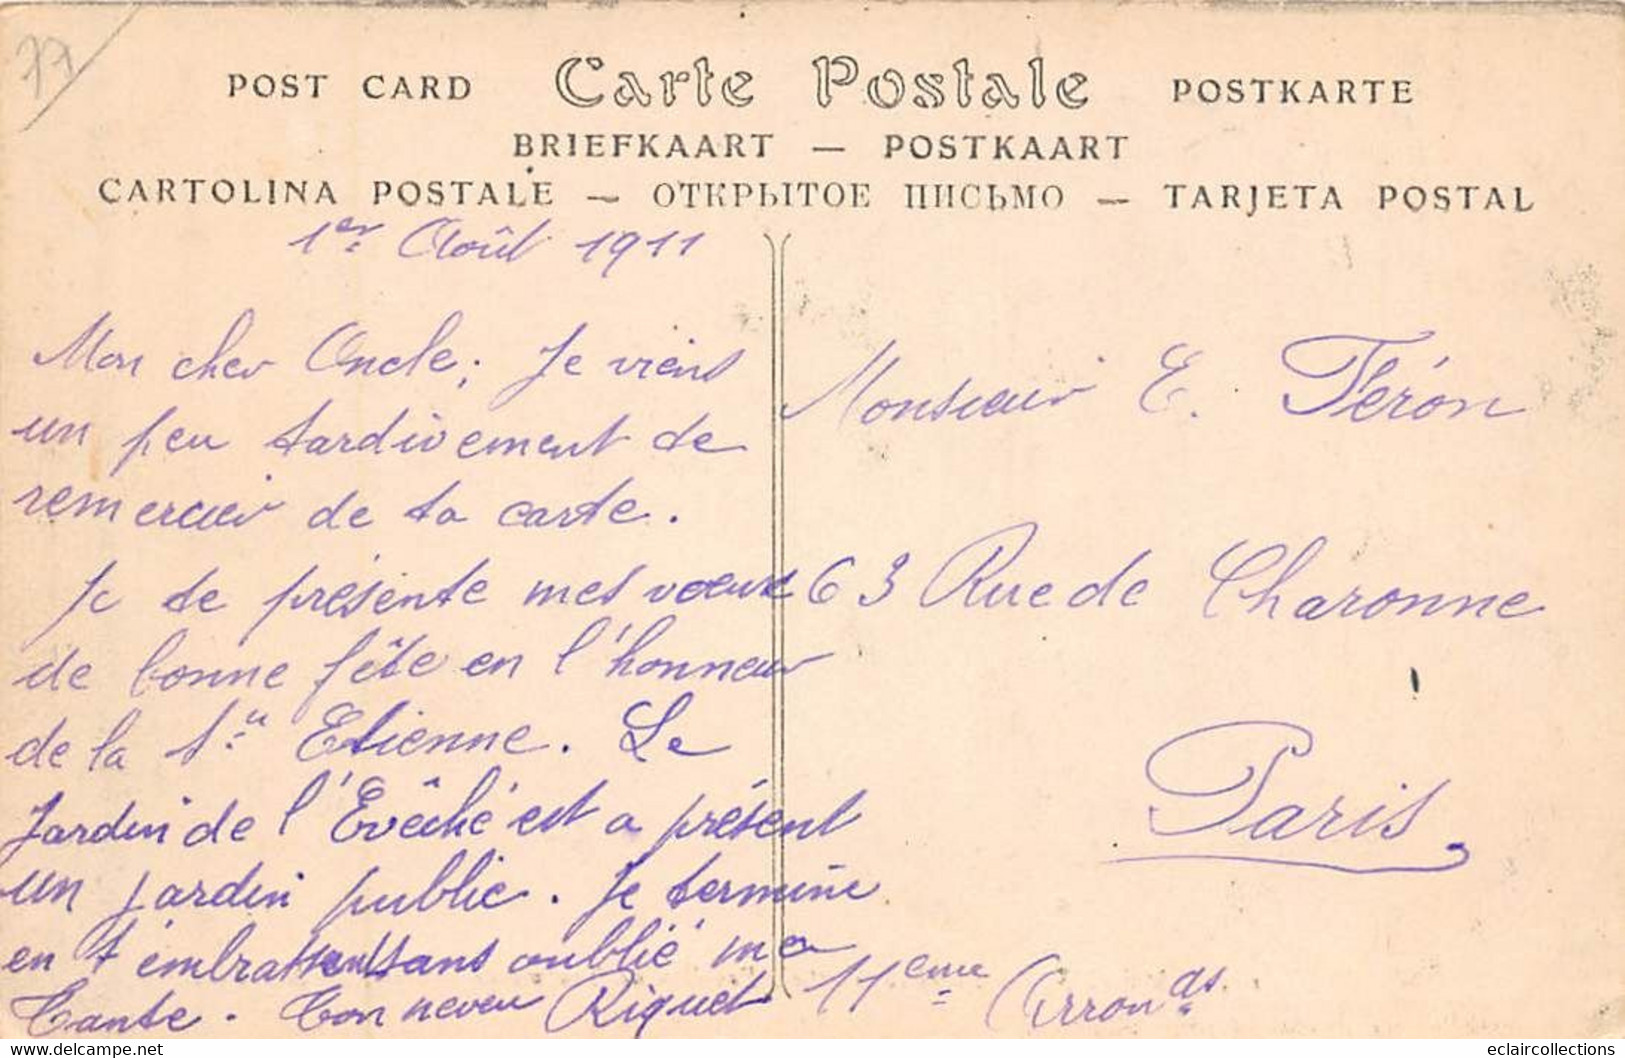 77
POST CARD Carte Postale POSTKARTE
BRIEFKAART — POSTKAART
CARTOLINA POSTALE — ОТКРЫТОЕ ПИСЬМО — TARJETA POSTAL
1er Août 1911
Mon cher Oncle; Je viens
un peu tardivement te
remercier de ta carte.
Je te présente mes voeux
de bonne fête en l'honneur
de la St Etienne. Le
Jardin de l'Evêché est a présent
un jardin public. Je termine
en t'embrassant sans oublié ma
tante. Ton neveu Riquet
Monsieur E. Féron
63 Rue de Charonne
Paris
11eme Arronds.
eclaircollections